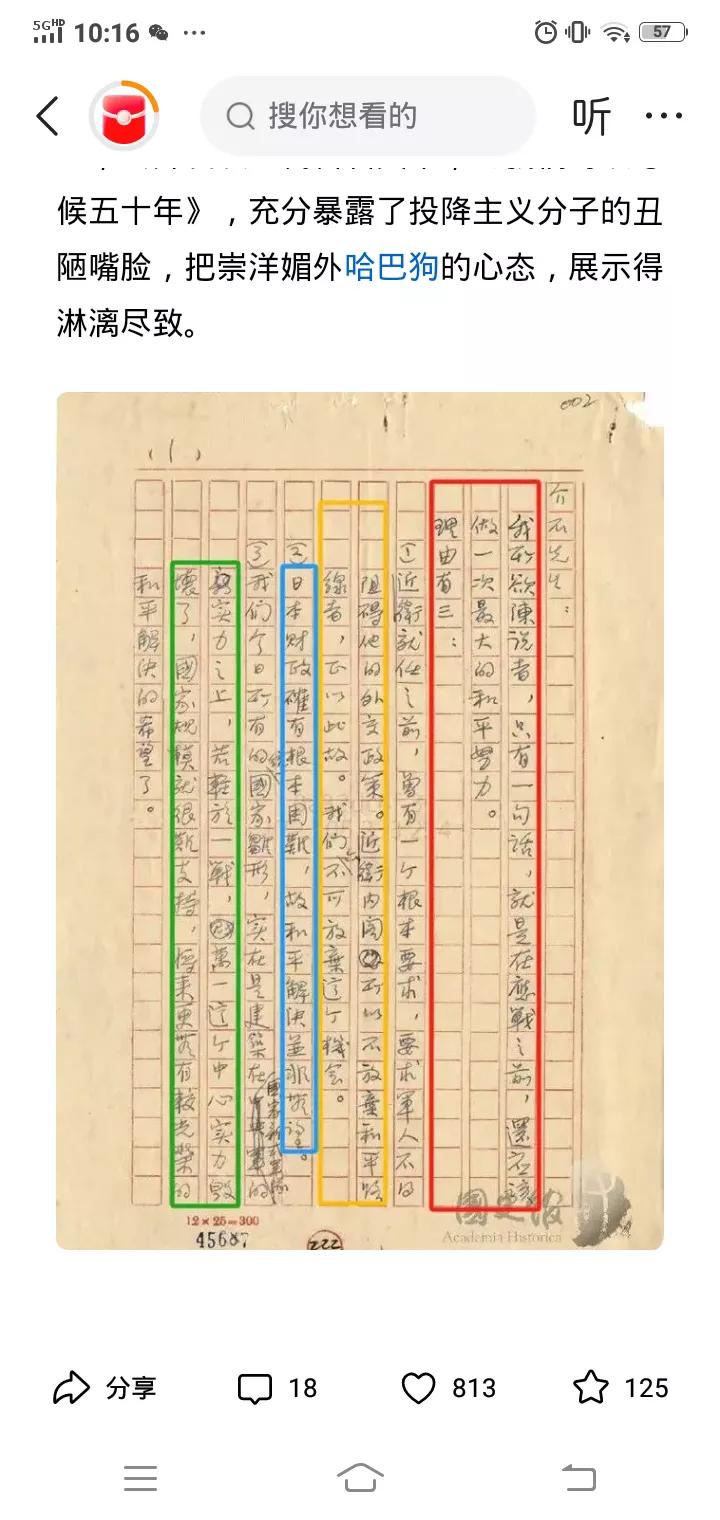 5G HD 10:16 ... 57
搜你想看的
听
候五十年》，充分暴露了投降主义分子的丑
陋嘴脸，把崇洋媚外哈巴狗的心态，展示得
淋漓尽致。
002
(1)
介石先生：
我所欲陳说者，只有一句话，就是在應戰之前，還应该
做一次最大的和平努力。
理由有三：
①近衛就任之前，曾有一个根本要求，要求軍人不得
阻碍他的外交政策。近衛内阁所以不放棄和平路
線者，正以此故。我们不可放棄这个機会。
②日本财政確有根本困難，故和平解决並非無望。
③我们今日所有的國家雛形，实在是建築在國家新式軍隊的
实力之上，若輕於一戰，萬一这个中心实力毁
壞了，國家规模就很難支持，將来更無有較光榮的
和平解决的希望了。
12×25=300
45687
222
國史館
Academia Historica
分享
18
813
125